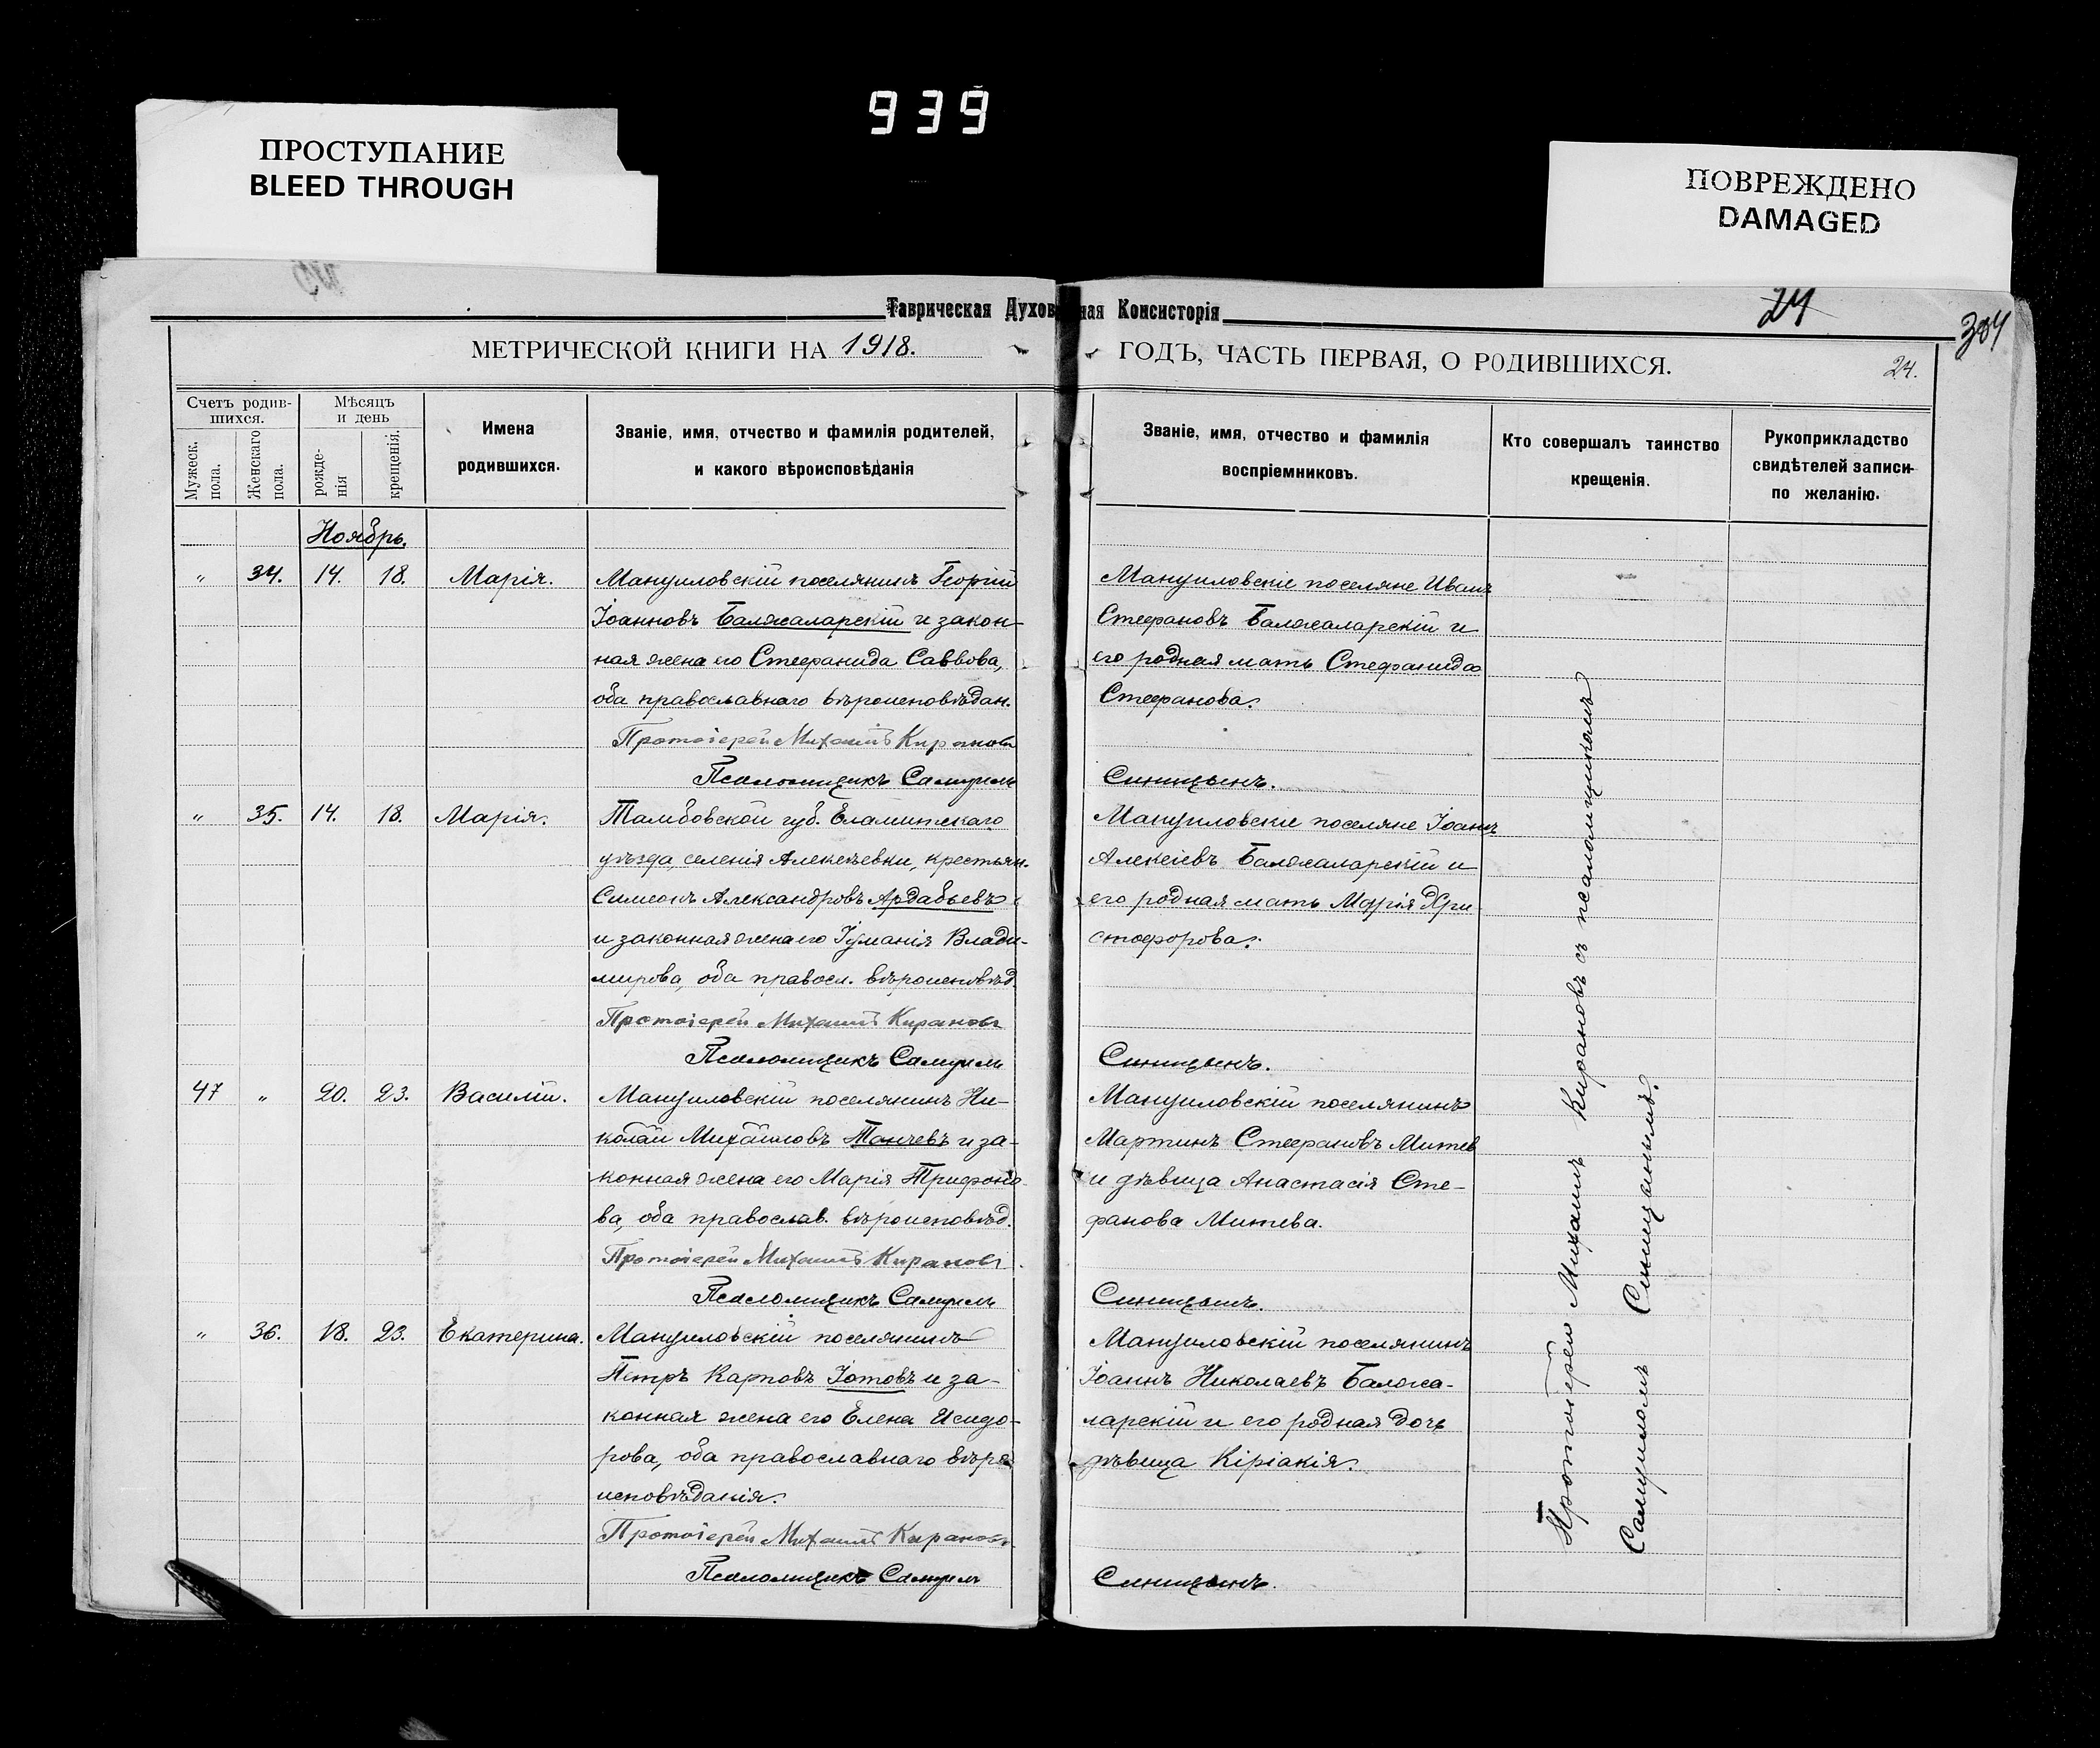 939
ПРОСТУПАНИЕ
BLEED THROUGH
ПОВРЕЖДЕНО
DAMAGED
Таврическая Духовная Консисторія
24
304
МЕТРИЧЕСКОЙ КНИГИ НА 1918. ГОДЪ, ЧАСТЬ ПЕРВАЯ, О РОДИВШИХСЯ.
24.
Счетъ родив-
шихся.
Мужеск.
пола.
Женскаго
пола.
Мѣсяцъ
и день
рожде-
нія
крещенія.
Имена
родившихся.
Званіе, имя, отчество и фамилія родителей,
и какого вѣроисповѣданія
Званіе, имя, отчество и фамилія
воспріемниковъ.
Кто совершалъ таинство
крещенія.
Рукоприкладство
свидѣтелей записи
по желанію.
Ноябрь.
" 34. 14. 18. Марія.
Мануиловскій поселянинъ Георгій
Іоанновъ Балжаларскій и закон-
ная жена его Стефанида Саввова,
оба православнаго вѣроисповѣдан.
Протоіерей Михаилъ Кирановъ
Псаломщикъ Самуилъ
Мануиловскіе поселяне Иванъ
Стефановъ Балжаларскій и
его родная мать Стефанида
Стефанова.
Синицынъ.
" 35. 14. 18. Марія.
Тамбовской губ. Елатмскаго
уѣзда, селенія Алексѣевки, крестьян.
Симеонъ Александровъ Ардабьевъ
и законная жена его Іуманія Влади-
мирова, оба правосл. вѣроисповѣд.
Протоіерей Михаилъ Кирановъ
Псаломщикъ Самуилъ
Мануиловскіе поселяне Іоаннъ
Алексіевъ Балжаларскій и
его родная мать Марія Хри-
стофорова.
Синицынъ.
47 " 20. 23. Василій.
Мануиловскій поселянинъ Ни-
колай Михаиловъ Танчевъ и за-
конная жена его Марія Трифоно-
ва, оба православ. вѣроисповѣд.
Протоіерей Михаилъ Кирановъ
Псаломщикъ Самуилъ
Мануиловскій поселянинъ
Мартинъ Стефановъ Митев
и дѣвица Анастасія Сте-
фанова Митева.
Синицынъ.
" 36. 18. 23. Екатерина.
Мануиловскій поселянинъ
Петръ Карповъ Іотовъ и за-
конная жена его Елена Исидо-
рова, оба православнаго вѣро
исповѣданія.
Протоіерей Михаилъ Кирановъ
Псаломщикъ Самуилъ
Мануиловскій поселянинъ
Іоаннъ Николаевъ Балжа-
ларскій и его родная дочь
дѣвица Киріакія.
Синицынъ.
Протоіерей Михаилъ Кирановъ съ псаломщикомъ
Самуиломъ Синицынымъ.